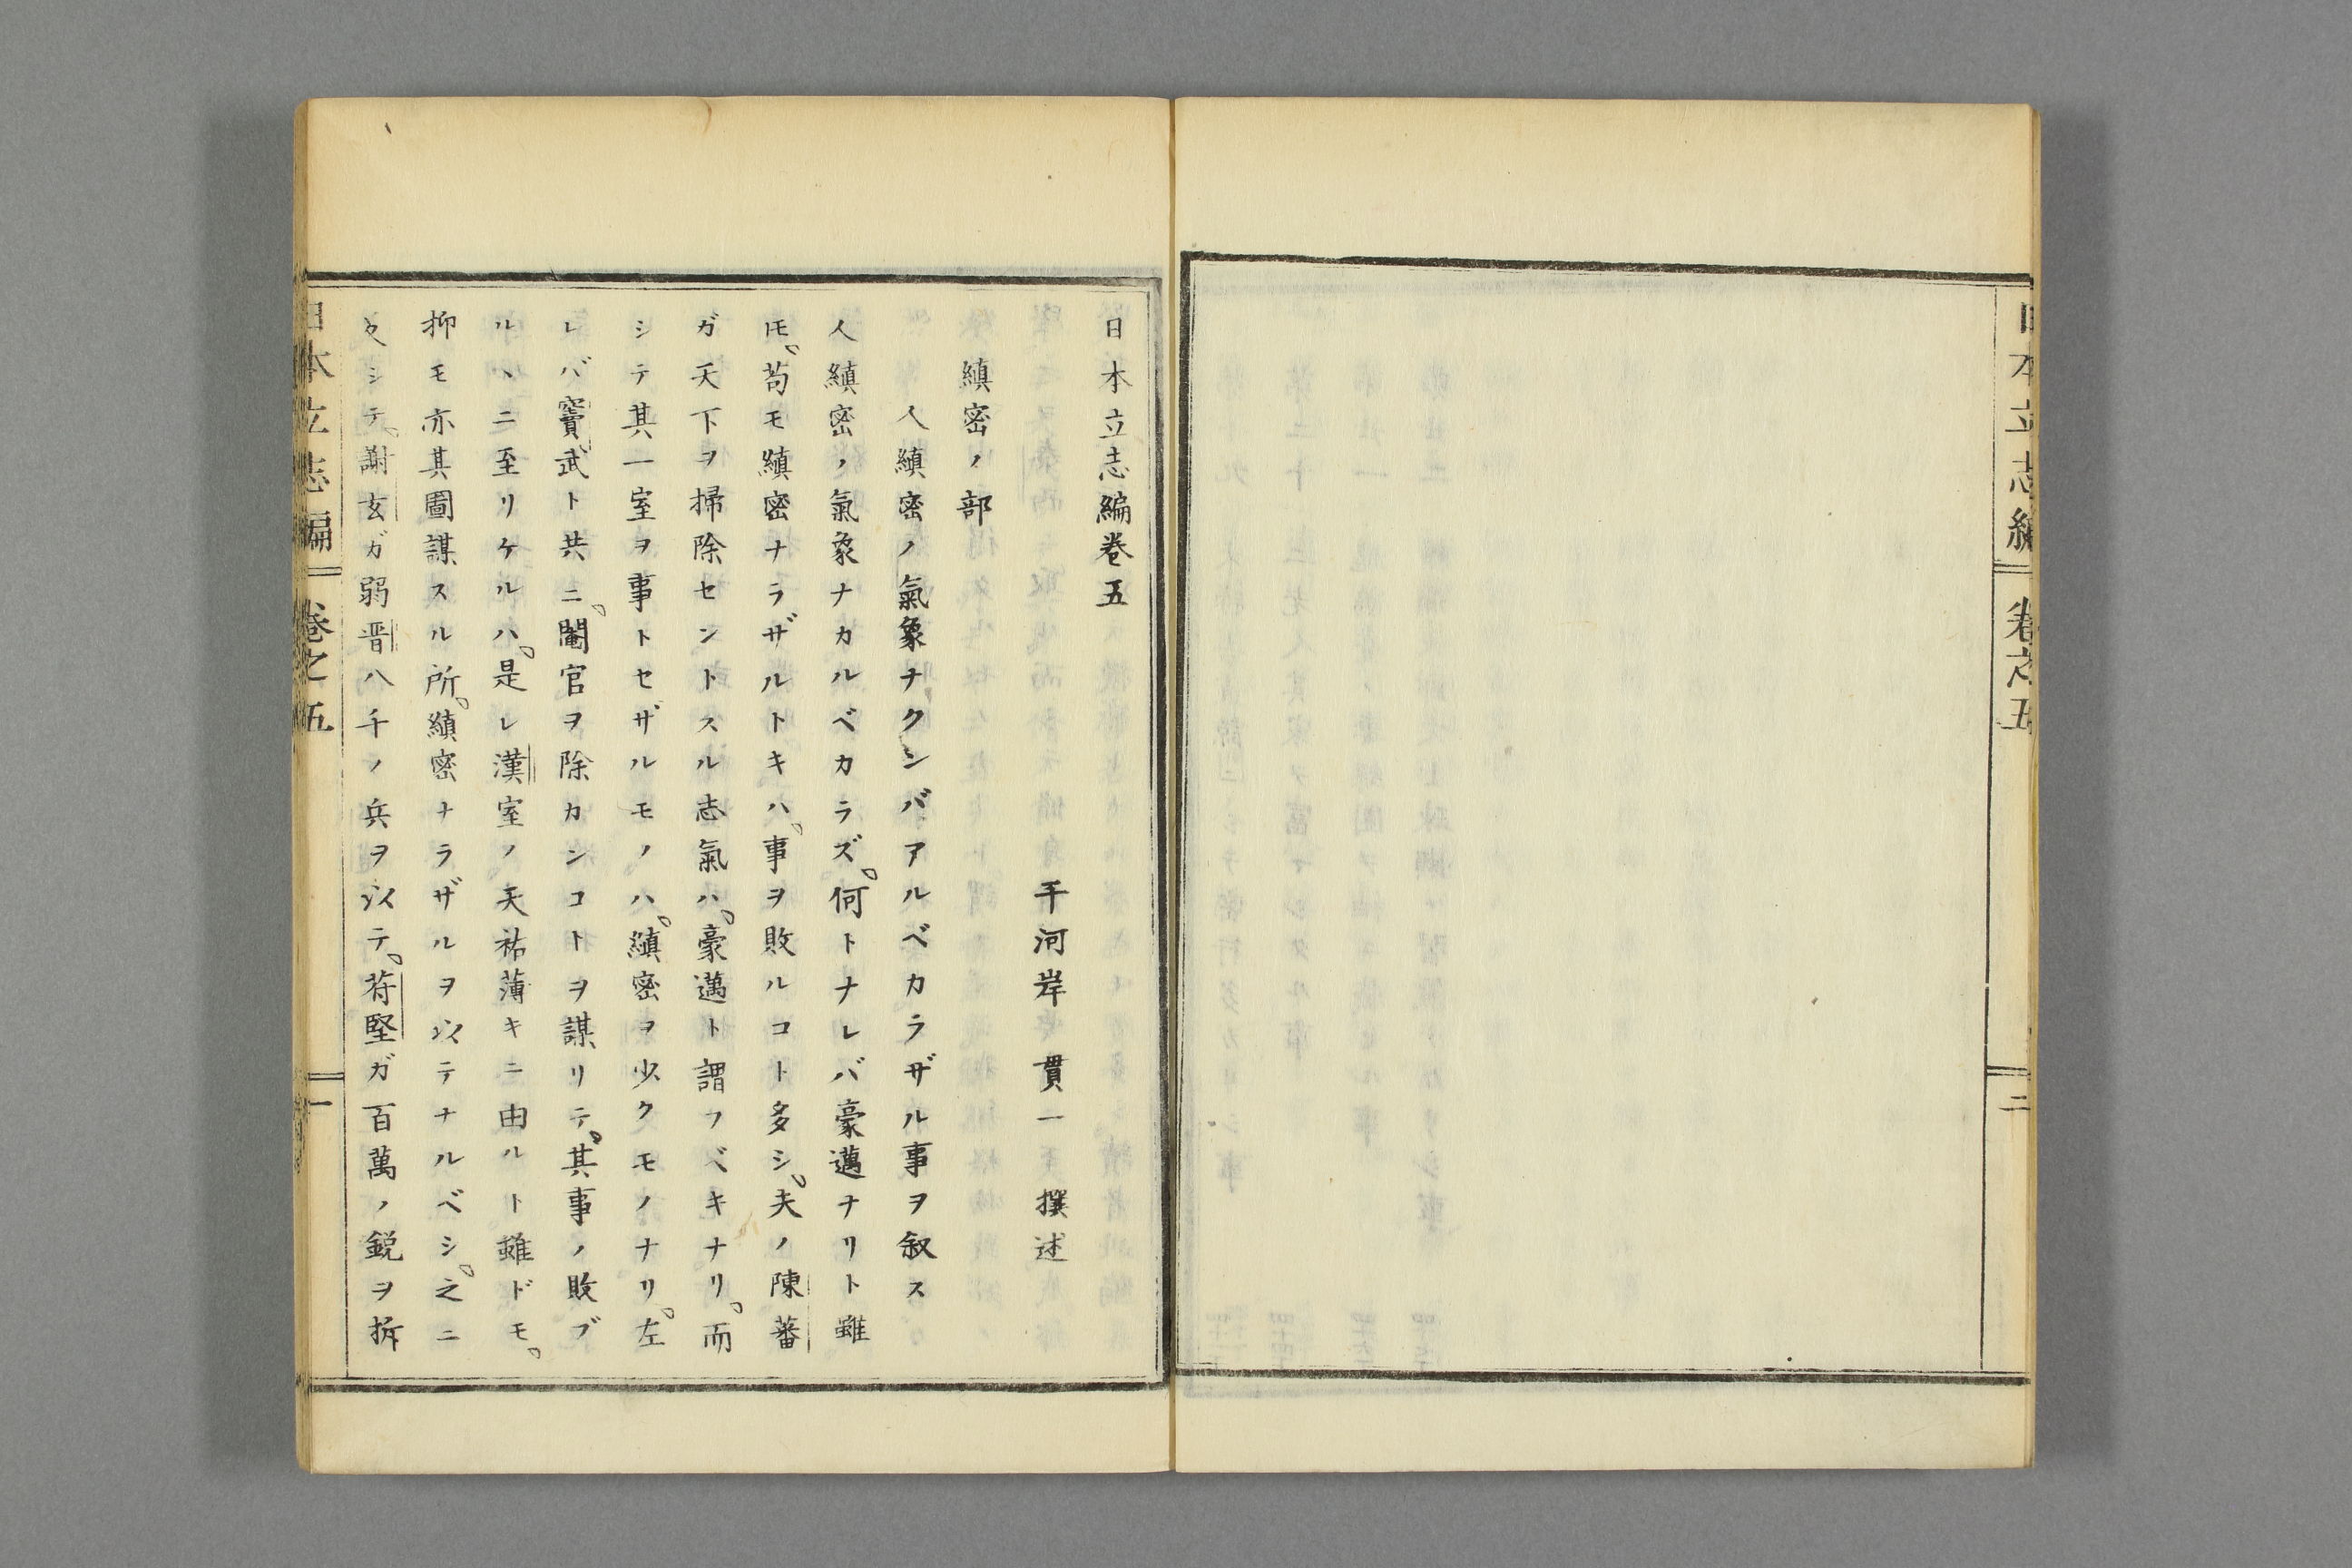 日本立志編
卷之五
二
日本立志編卷五
千河岸 貫一 撰述
縝密ノ部
人縝密ノ氣象ナクンバアルベカラザル事ヲ叙ス
人縝密ノ氣象ナカルベカラズ。何トナレバ豪邁ナリト雖
𪜈。苟モ縝密ナラザルトキハ。事ヲ敗ルコト多シ。夫ノ陳蕃
ガ天下ヲ掃除セントスル志氣ハ。豪邁ト謂フベキナリ。而
シテ其一室ヲ事トセザルモノハ。縝密ヲ少クモノナリ。左
レバ竇武ト共ニ。閹官ヲ除カンコトヲ謀リテ。其事ノ敗ブ
ルヽニ至リケルハ。是レ漢室ノ天祐薄キニ由ルト雖ドモ。
抑モ亦其圖謀スル所。縝密ナラザルヲ以テナルベシ。之ニ
反シテ。謝玄ガ弱晋八千ノ兵ヲ以テ。苻堅ガ百萬ノ鋭ヲ拆
日本立志編
卷之五
一